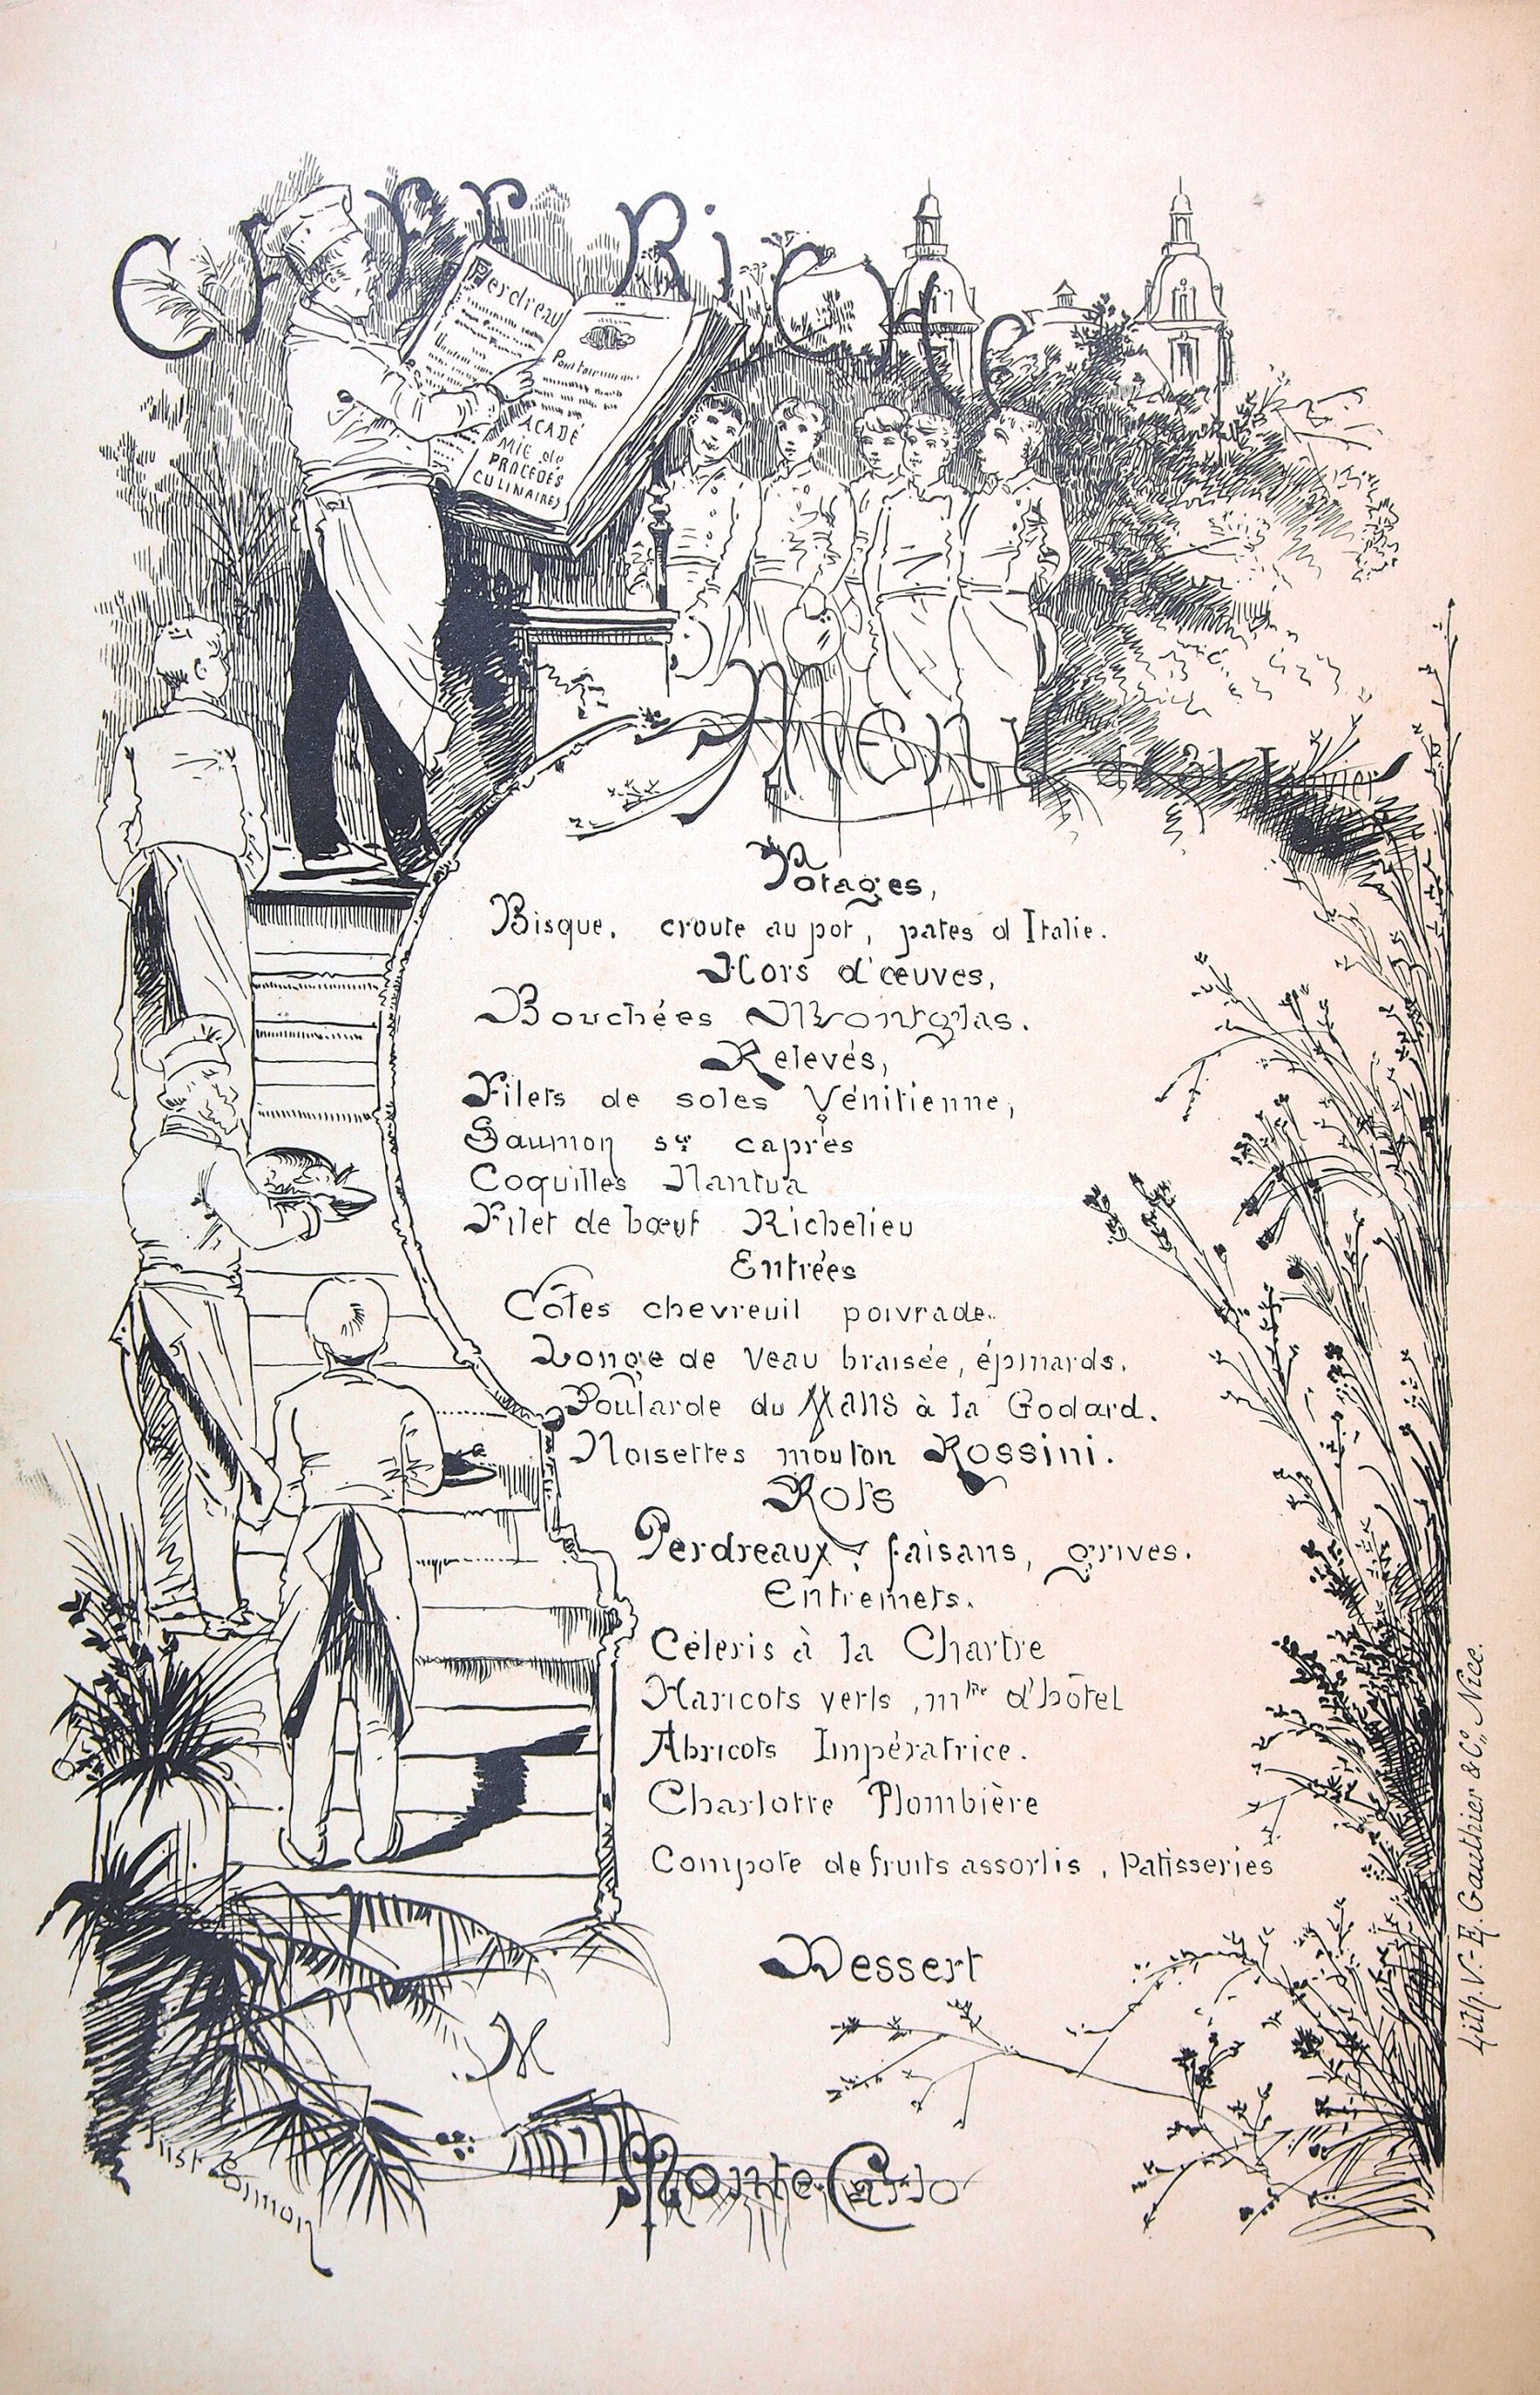 CAFE RICHE
Perdreau
ACADÉ
MIE de
PROCEDÉS
CULINAIRES
Menu du 31 Janvier
Potages,
Bisque, croute au pot, pates d'Italie.
Hors d'œuves,
Bouchées Montglas.
Relevés,
Filets de soles Vénitienne,
Saumon sce caprès
Coquilles Nantua
Filet de bœuf Richelieu
Entrées
Côtes chevreuil poivrade.
Longe de veau braisée, épinards.
Poularde du Mans à la Godard.
Noisettes mouton Rossini.
Rots
Perdreaux, faisans, grives.
Entremets.
Céleris à la Chartre
Haricots verts, mtre d'hôtel
Abricots Impératrice.
Charlotte Plombière
Compote de fruits assortis, Patisseries
Dessert
M
Monte-Carlo
Just Simon
Lith. V.-E. Gauthier & Co, Nice.